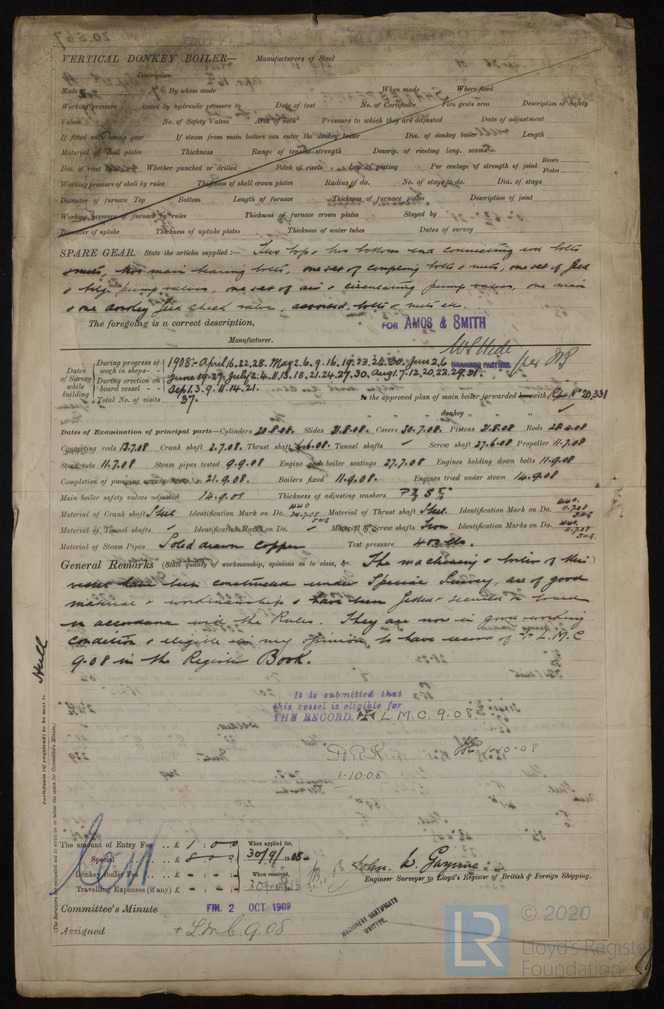 VERTICAL DONKEY BOILER— Manufacturers of Steel
No. Description
Made at By whom made When made Where fixed
Working pressure tested by hydraulic pressure to Date of test No. of Certificate Fire grate area Description of Safety
Valves No. of Safety Valves Area of each Pressure to which they are adjusted Date of adjustment
If fitted with easing gear If steam from main boilers can enter the donkey boiler Dia. of donkey boiler Length
Material of shell plates Thickness Range of tensile strength Descrip. of riveting long. seams
Dia. of rivet holes Whether punched or drilled Pitch of rivets Lap of plating Per centage of strength of joint Rivets Plates
Working pressure of shell by rules Thickness of shell crown plates Radius of do. No. of stays to do. Dia. of stays
Diameter of furnace Top Bottom Length of furnace Thickness of furnace plates Description of joint
Working pressure of furnace by rules Thickness of furnace crown plates Stayed by
Diameter of uptake Thickness of uptake plates Thickness of water tubes Dates of survey
SPARE GEAR. State the articles supplied:— Two top & two bottom end connecting rod bolts
& nuts, two main bearing bolts, one set of coupling bolts & nuts, one set of feed
& bilge pump valves, one set of air & circulating pump valves, one main
& one donkey feed check valve, assorted bolts & nuts etc.
The foregoing is a correct description,
FOR AMOS & SMITH
Manufacturer.
MANAGING PARTNER
Dates of Survey while building
During progress of work in shops - - 1908:- April 16.22.28. May 2.6.9.16.19.23.26.30. June 2.6
During erection on board vessel - - June 19.27. July 2.4.11.13.18.21.24.27.30. Aug 1.7.12.20.22.29.31.
Sep 1.3.9.11.14.21.
Total No. of visits 37.
Is the approved plan of main boiler forwarded herewith
" " " donkey " " "
Dates of Examination of principal parts— Cylinders 20.8.08. Slides 21.8.08. Covers 30.7.08. Pistons 21.8.08 Rods 28.4.08
Connecting rods 13.7.08 Crank shaft 2.7.08. Thrust shaft 6.6.08 Tunnel shafts Screw shaft 27.6.08 Propeller 11.7.08
Stern tube 11.7.08 Steam pipes tested 9.9.08 Engine and boiler seatings 27.7.08 Engines holding down bolts 11.9.08
Completion of pumping arrangements 21.9.08. Boilers fixed 11.9.08. Engines tried under steam 14.9.08
Main boiler safety valves adjusted 14.9.08 Thickness of adjusting washers
Material of Crank shaft Steel Identification Mark on Do. 440 Material of Thrust shaft Steel. Identification Mark on Do. 440. 11.7.08
Material of Tunnel shafts Identification Marks on Do. Material of Screw shafts Iron Identification Marks on Do. 440. 11.7.08
Material of Steam Pipes Solid drawn Copper Test pressure 400 lbs.
General Remarks (State quality of workmanship, opinions as to class, &c. The machinery & boilers of this
vessel have been constructed under Special Survey, are of good
material & workmanship & have been tested & secured on board
in accordance with the Rules. They are now in good working
condition & eligible in my opinion to have record of + L.M.C
9-08 in the Register Book.
Certificate (if required) to be sent to Hull
(The Surveyors are requested not to write on or below the space for Committee's Minute.)
It is submitted that
this vessel is eligible for
THE RECORD. + L.M.C. 9.08.
1.10.08
The amount of Entry Fee .. £ 1 : 0 : 0 When applied for,
Special .. £ 8 : 0 : 30/9/1908
Donkey Boiler Fee .. £ - : - : When received,
Travelling Expenses (if any) £ - : - :
Engineer Surveyor to Lloyd's Register of British & Foreign Shipping.
Committee's Minute FRI. 2 OCT 1908
Assigned + L.M.C. 9.08
MACHINERY CERTIFICATE
WRITTEN.
LR
© 2020
Lloyd's Register
Foundation